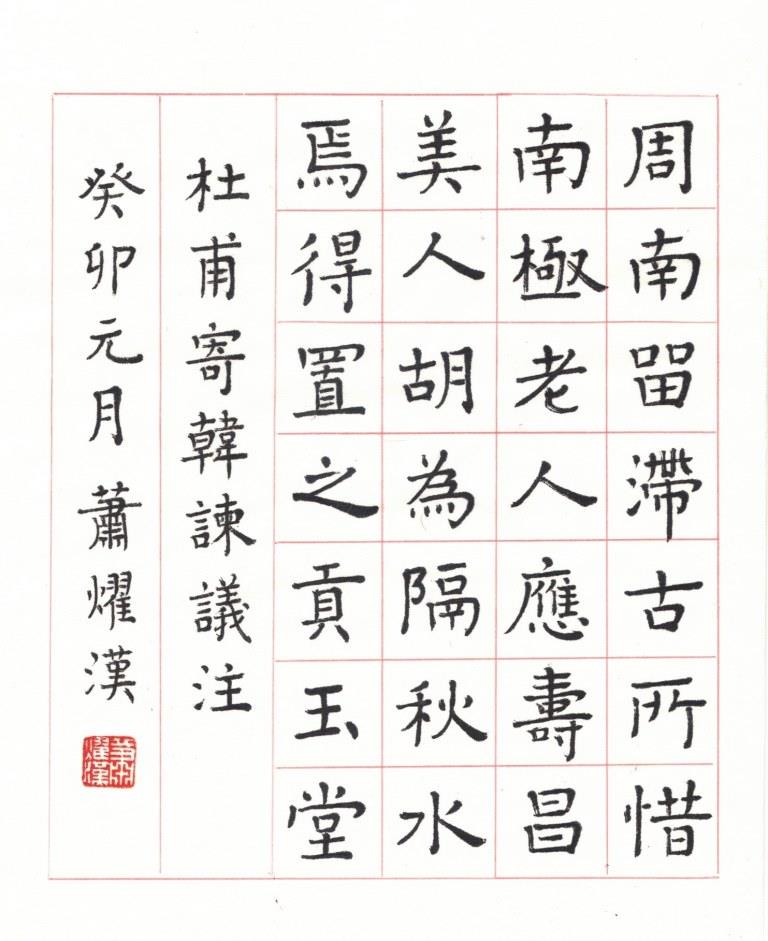 周南畱滯古所惜
南極老人應壽昌
美人胡為隔秋水
焉得置之貢玉堂
杜甫寄韓諫議注
癸卯元月蕭燿漢
蕭燿漢